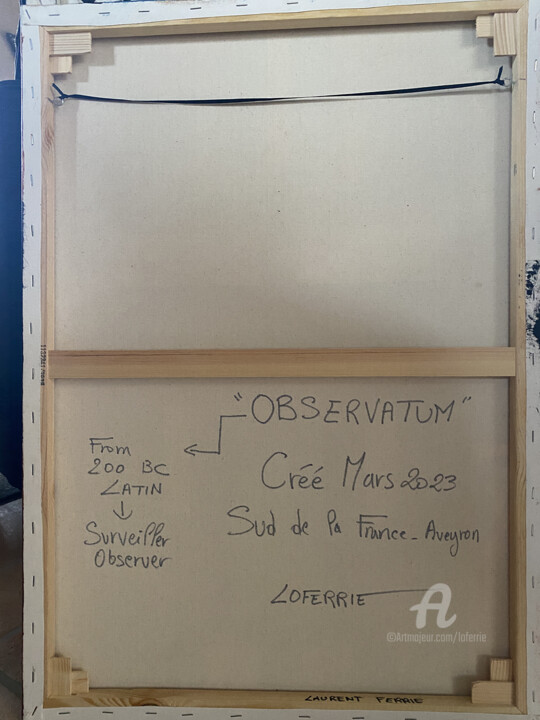 "OBSERVATUM"
From
200 BC
LATIN
↓
Surveiller
Observer
Créé Mars 2023
Sud de la France - Aveyron
LOFERRIE
©Artmajeur.com/loferrie
LAURENT FERRIE